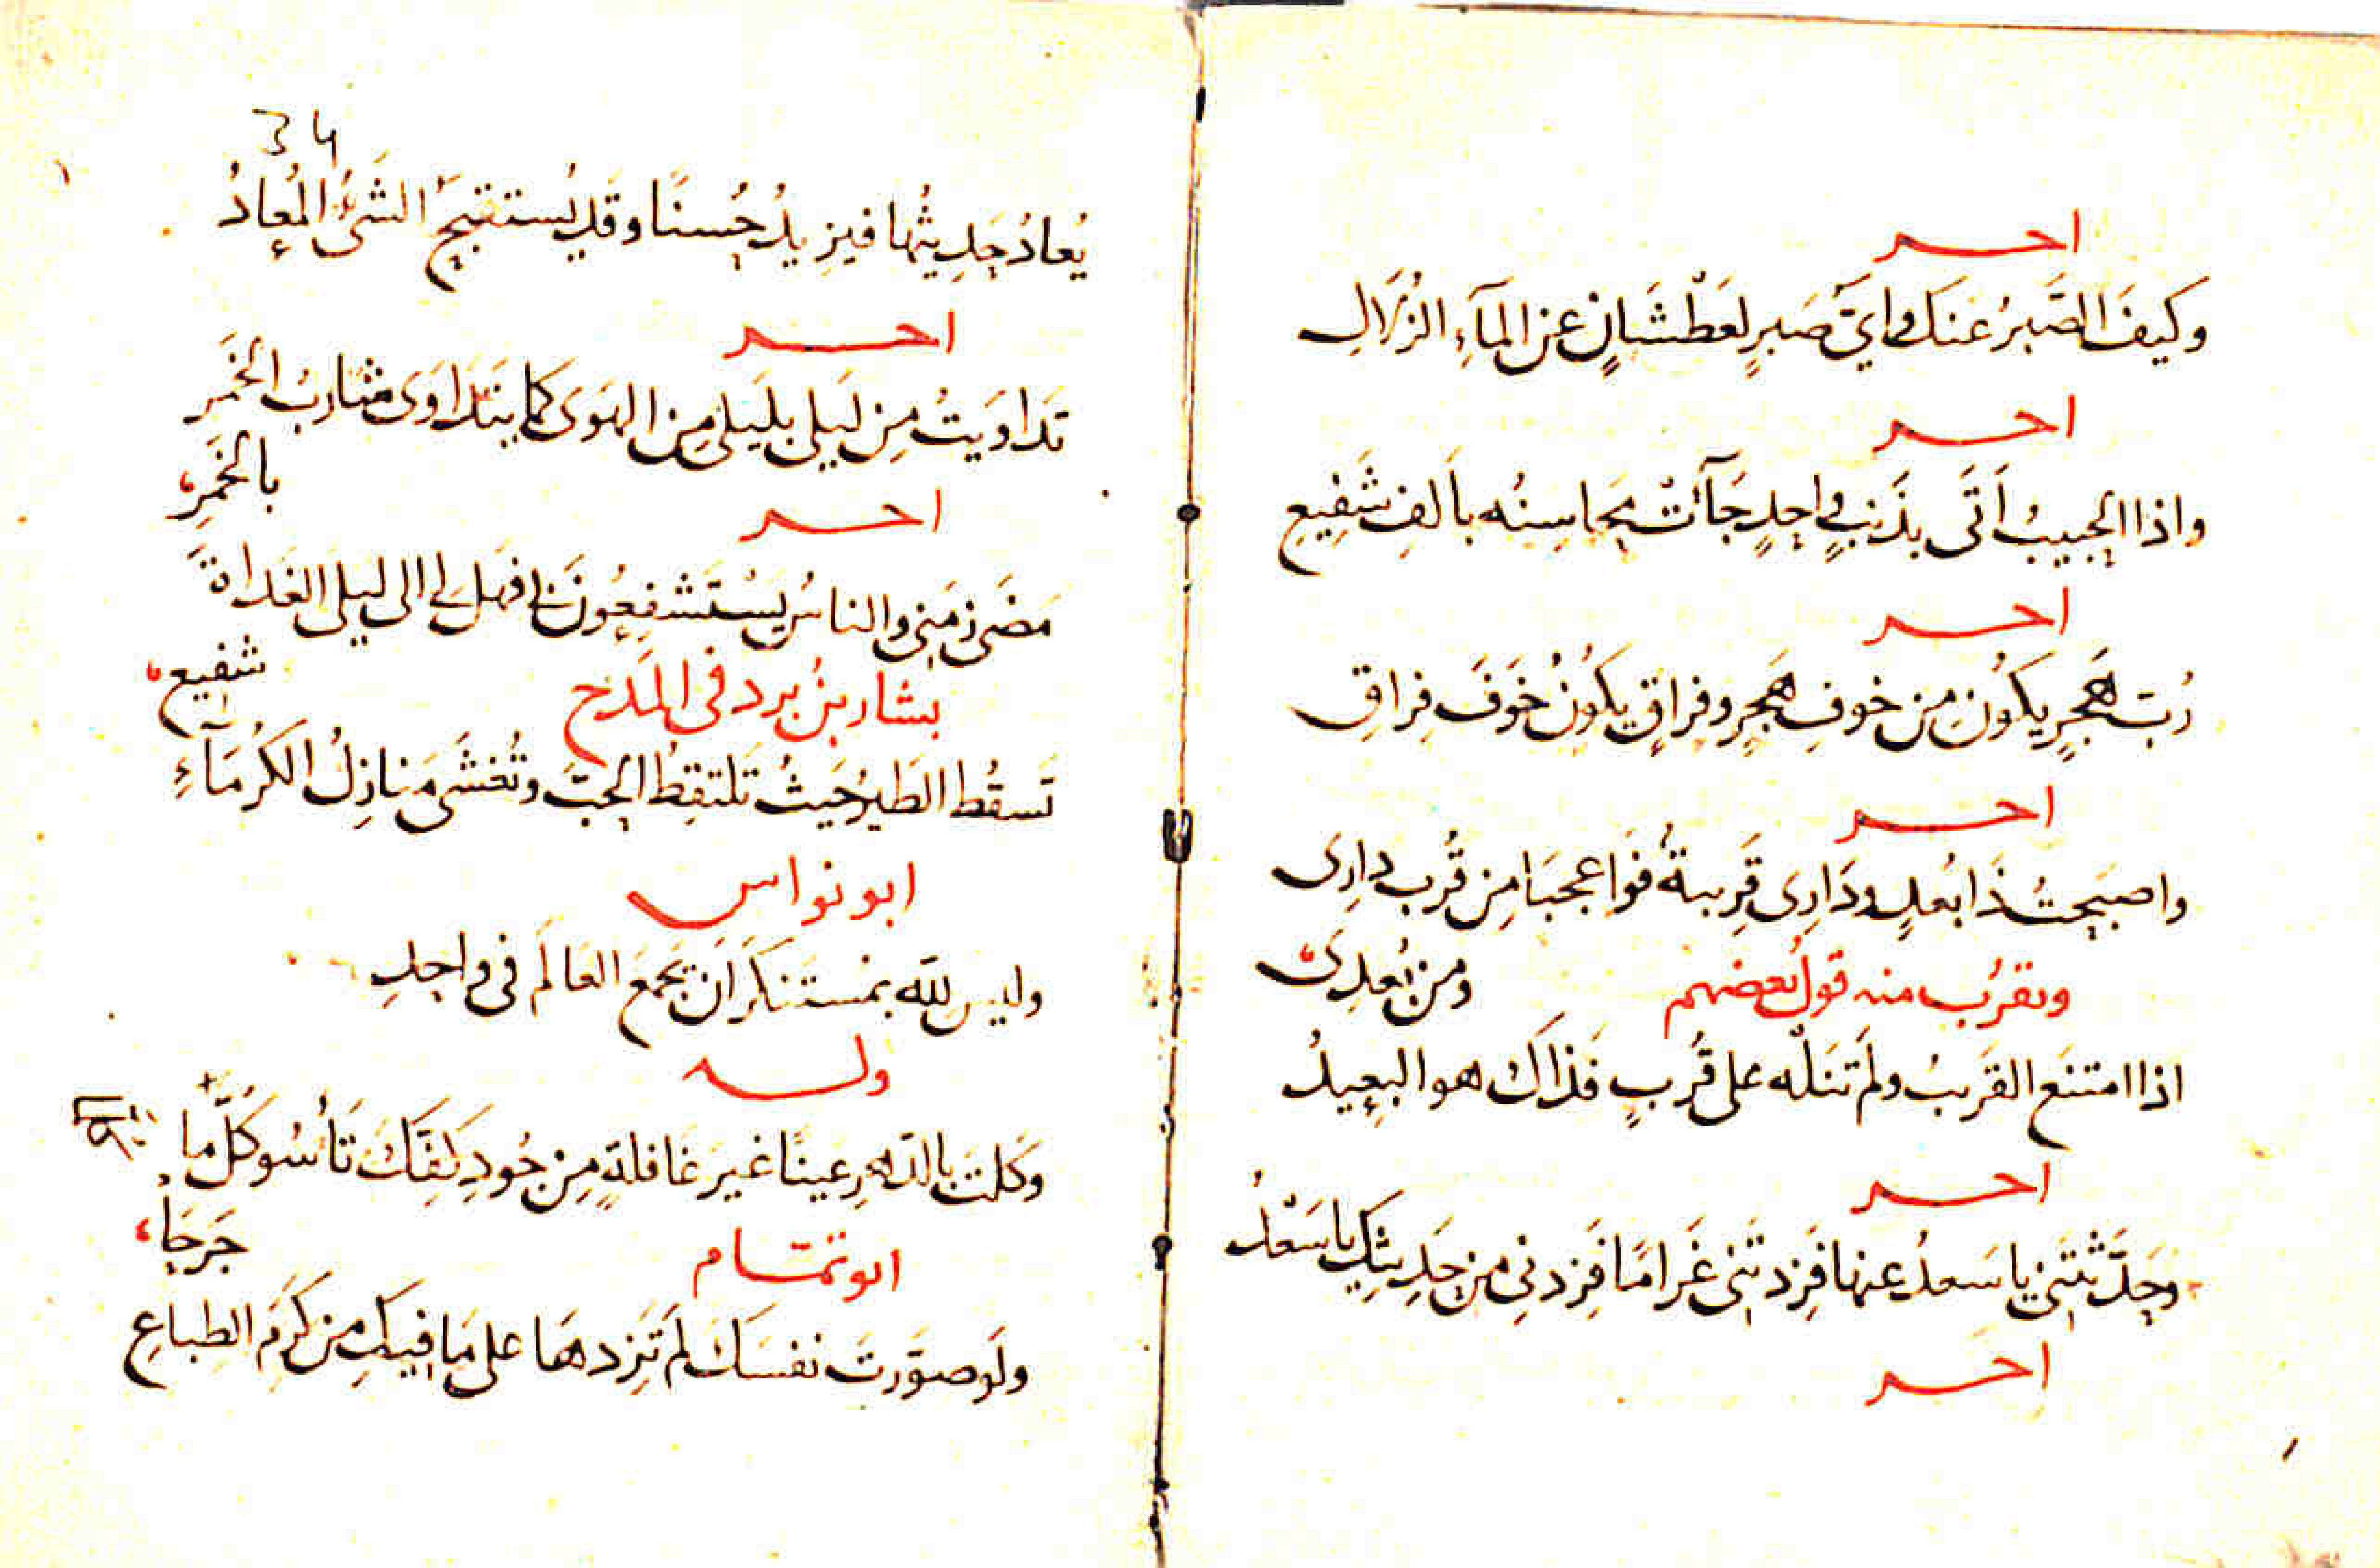 اخر
وكيفَ الصَّبرُ عَنكَ واىّ صَبرٍ لعَطْشَانٍ عن المآءِ الزُلَالِ
اخر
واذا الحبيبُ اَتَى بذَنبٍ واحِدٍ جَآءَتْ مَحاسِنُه بأَلفِ شَفِيعِ
اخر
رُبَّ هَجرٍ يكونُ مِن خوفِ هَجرٍ وفراقٍ يكونُ خَوفَ فِراقِ
اخر
واصبَحتُ ذَا بُعدٍ ودَارِى قَرِيبةٌ فَوَا عجبَا مِن قُربِ دارِى
ومن بُعدِىْ
ويقرُب منه قول بعضهم
اذا امتنَع القَريبُ ولَم تَنَلْه على قُربٍ فَذاكَ هو البعِيدُ
اخر
وَحَدَّثتَنِى يا سَعدُ عنها فَزِدتَنِى غَرامًا فَزِدنِى من حَدِيثِكَ يا سَعْدُ
اخر
34
يُعادُ حَدِيثُها فيَزِيدُ حُسنًا وقَد يُستقبَحُ الشَىءُ المُعادُ
اخر
تَداوَيتُ مِن لَيلى بلَيلى مِن الهَوَى كما يتَداوَى شَارِبُ الخَمرِ
بالخَمرِ
اخر
مَضَى زمَنِى والناسُ يَستَشفِعُونَ بى فهَل لى الى ليلى الغَداةَ
شفيع
بشار بنُ برد فى المَدح
تَسقُط الطَيرُ حَيثُ تَلتقِطُ الحَبَّ وتُغشَى مَنازِلُ الكُرَمَآءِ
ابو نواس
وليس للّه بمُستَنكَرٍ اَن يَجمَعَ العَالَم فى واحِدِ
وله
وَكلتَ بالدَهرِ عينًا غيرَ غَافلةٍ مِن جُودِ كَفِّكَ تَأسُو كُلَّ ما
جَرحَا
ابو تمّام
ولَو صوّرتَ نفسَكَ لَم تَزِدهَا على مَا فيكَ مِن كَرَمِ الطِباعِ